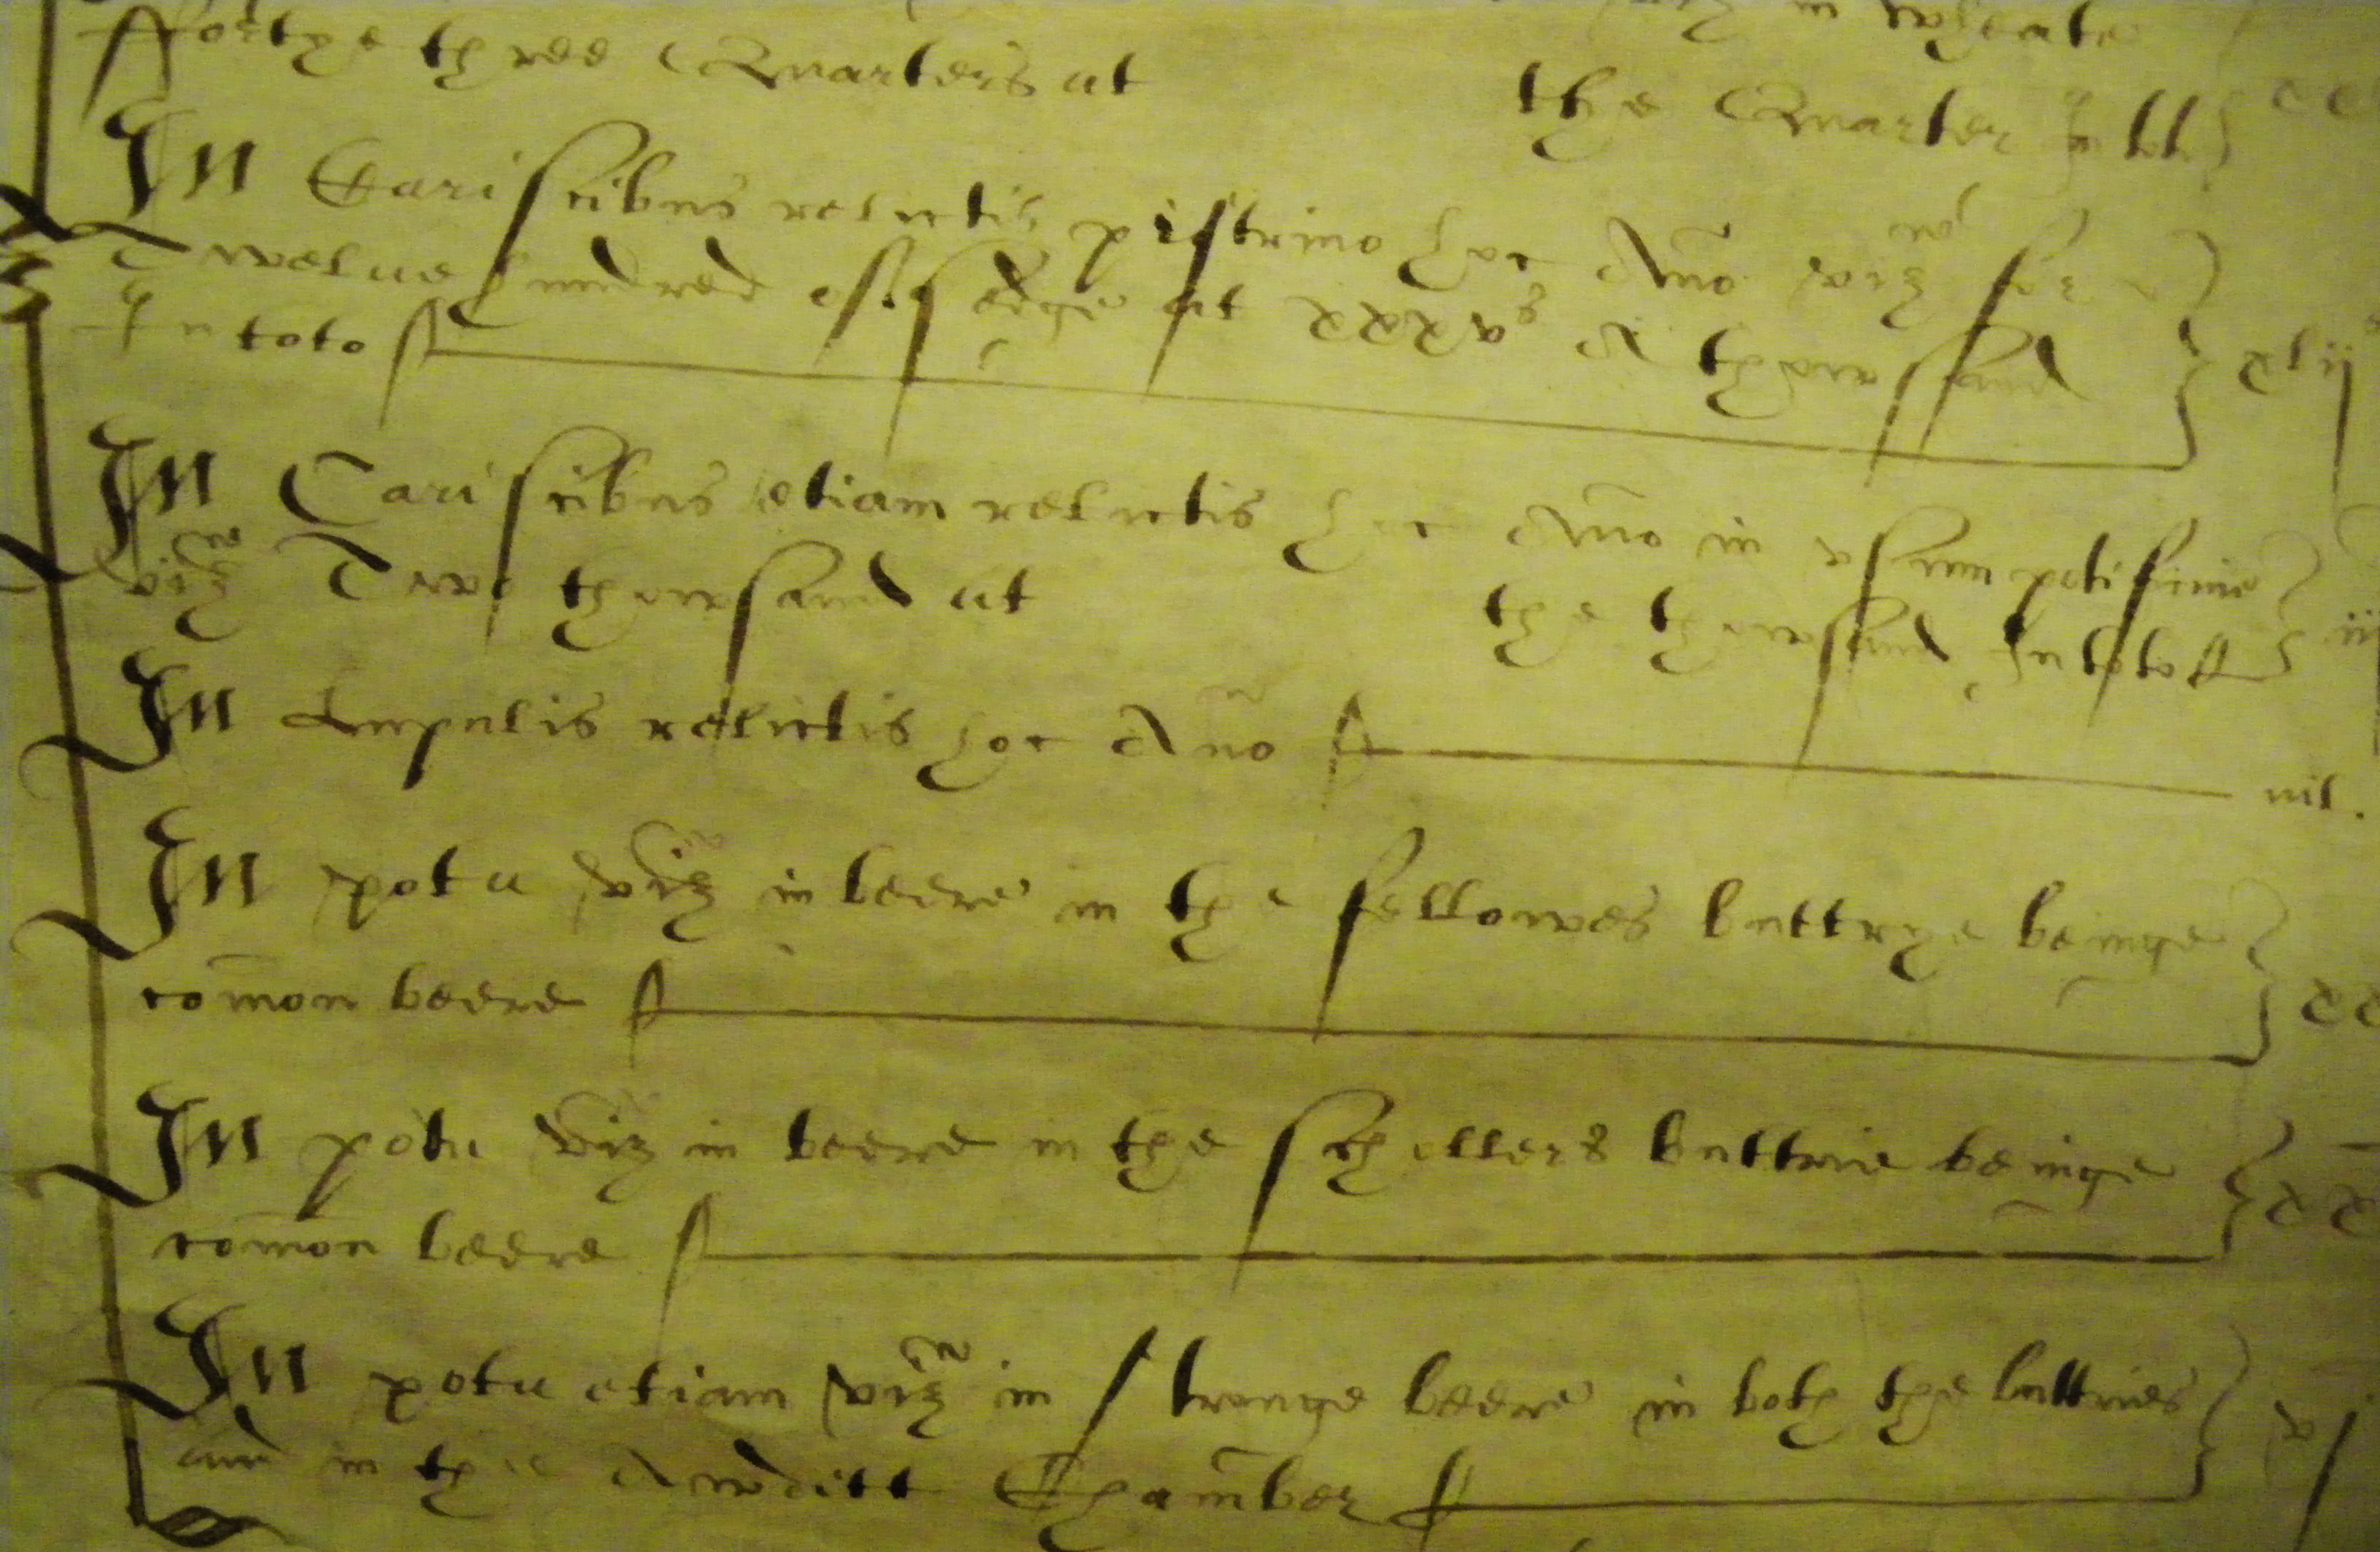 viz in wheate
ffortye three Quarters at the Quarter In toto
In Cariscibus relictis pistrino hoc Anno viz for
Twelue hundred of sedge at xxxv s A thowsand
In toto
xlij
In Cariscibus etiam relictis hoc Anno in vsum
viz Two thowsand at the thowsand In toto
In Lupulis relictis hoc Ano nil.
In potu viz in beere in the fellowes buttrye beinge
comon beere
In potu viz in beere in the schollers buttrie beinge
comon beere
In potu etiam viz in stronge beere in both the buttries
and in the Awditt Chamber